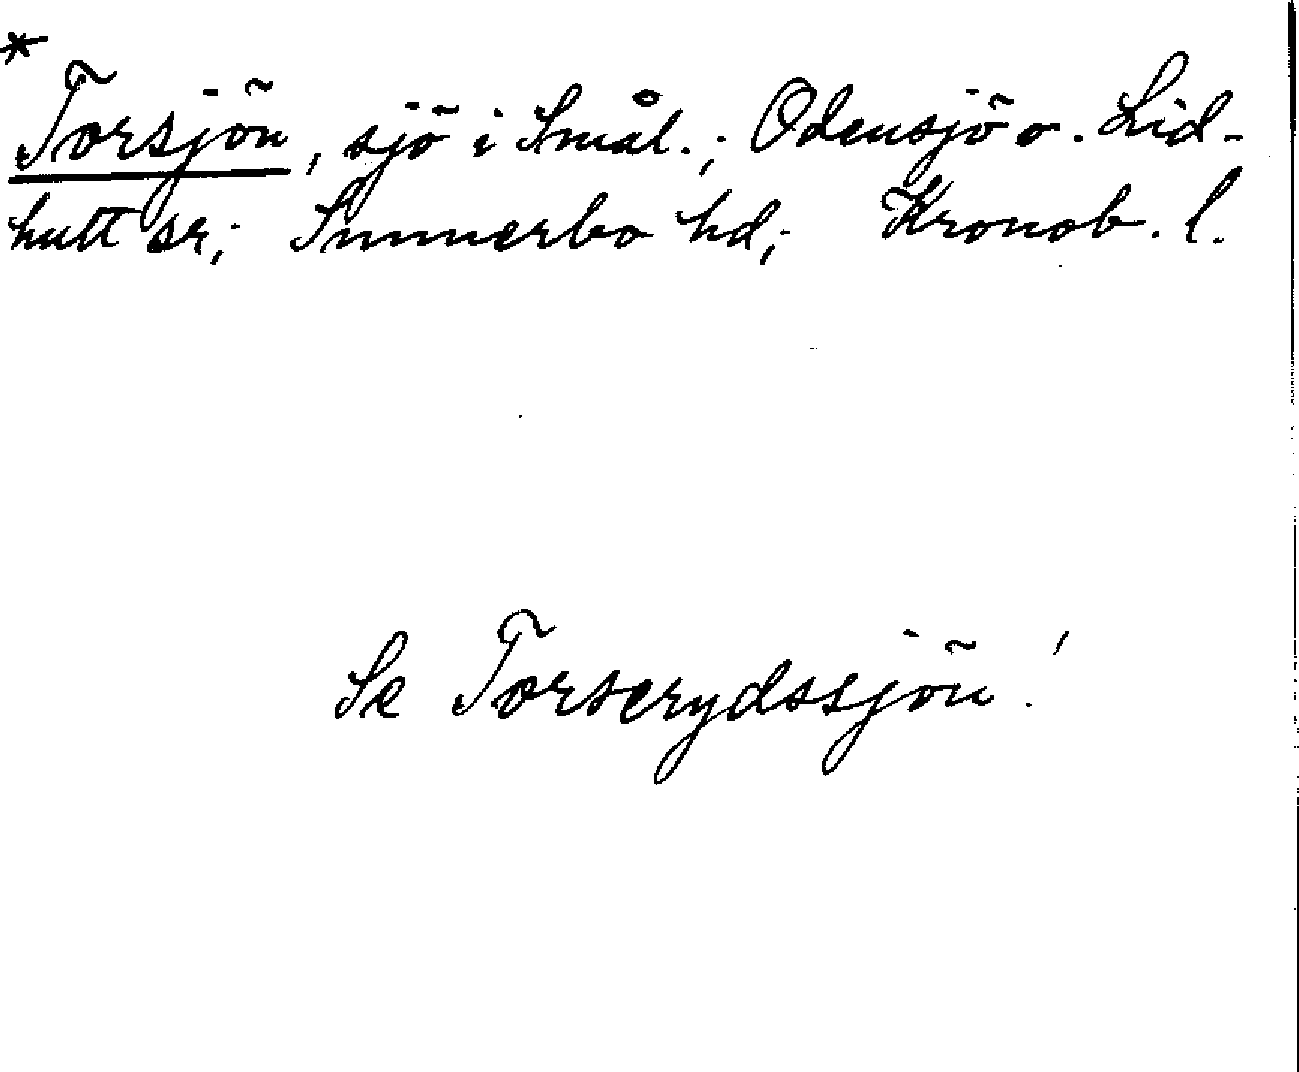 *
Torsjön, sjö i Smål.; Odensjö o. Lid-
hult sr; Sunnerbo hd; Kronob. l.
Se Torserydssjön!